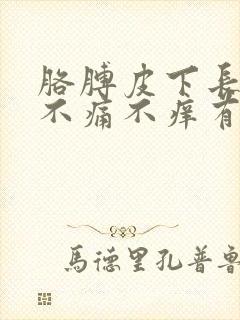 胳膊皮下長
不痛不痒有
馬德里孔普魯